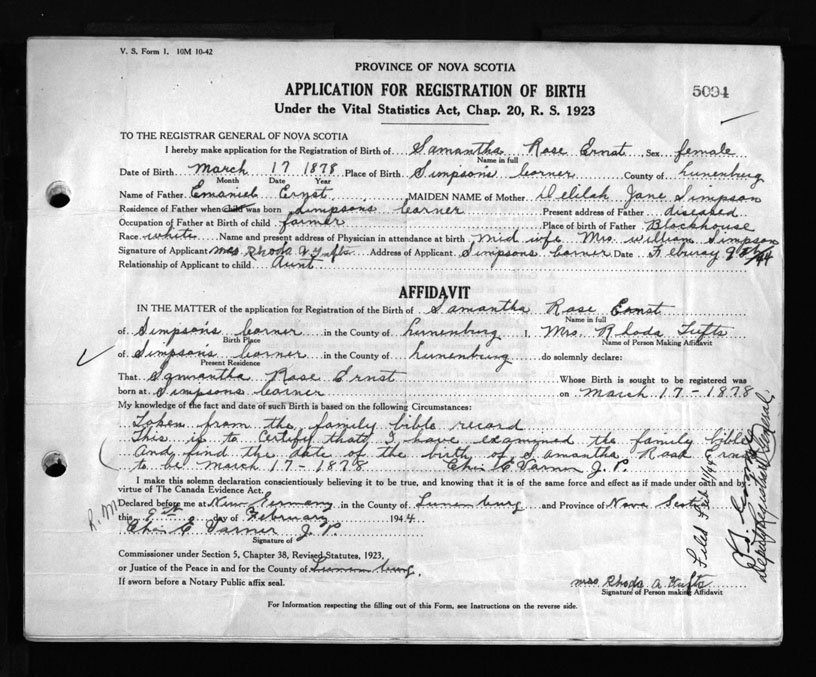 V. S. Form 1. 10M 10-42
PROVINCE OF NOVA SCOTIA
5094
APPLICATION FOR REGISTRATION OF BIRTH
Under the Vital Statistics Act, Chap. 20, R. S. 1923
TO THE REGISTRAR GENERAL OF NOVA SCOTIA
I hereby make application for the Registration of Birth of Samantha Rose Ernst, Sex female
Name in full
Date of Birth March 17 1878 Place of Birth Simpson's Corner County of Lunenburg
Month Date Year
Name of Father Emanuel Ernst MAIDEN NAME of Mother Delilah Jane Simpson
Residence of Father when child was born Simpsons Corner Present address of Father diseased
Occupation of Father at Birth of child farmer Place of birth of Father Blockhouse
Race white Name and present address of Physician in attendance at birth mid wife Mrs. William Simpson
Signature of Applicant Mrs Rhoda A Tufts Address of Applicant Simpsons Corner Date Feburay 9th/44
Relationship of Applicant to child Aunt.
AFFIDAVIT
IN THE MATTER of the application for Registration of the Birth of Samantha Rose Ernst
Name in full
of Simpson's Corner in the County of Lunenburg I, Mrs. Rhoda Tufts
Birth Place Name of Person Making Affidavit
of Simpson's Corner in the County of Lunenburg do solemnly declare:
Present Residence
That Samantha Rose Ernst Whose Birth is sought to be registered was
born at Simpsons Corner on March 17-1878
My knowledge of the fact and date of such Birth is based on the following Circumstances:
Taken from the family bible record
This is to Certify that I have examined the family bible
And find the date of the birth of Samantha Rose Ernst
to be March 17-1878 Chas C Varner J. P.
I make this solemn declaration conscientiously believing it to be true, and knowing that it is of the same force and effect as if made under oath and by
virtue of The Canada Evidence Act.
R.M.
Declared before me at New Germany in the County of Lunenburg and Province of Nova Scotia
this 9th day of February 1944
Chas C Varner J. P.
Signature of
Commissioner under Section 5, Chapter 38, Revised Statutes, 1923,
or Justice of the Peace in and for the County of Lunenburg.
If sworn before a Notary Public affix seal.
Mrs Rhoda A. Tufts
Signature of Person making Affidavit
For Information respecting the filling out of this Form, see Instructions on the reverse side.
Filed Feb
Deputy Registrar General